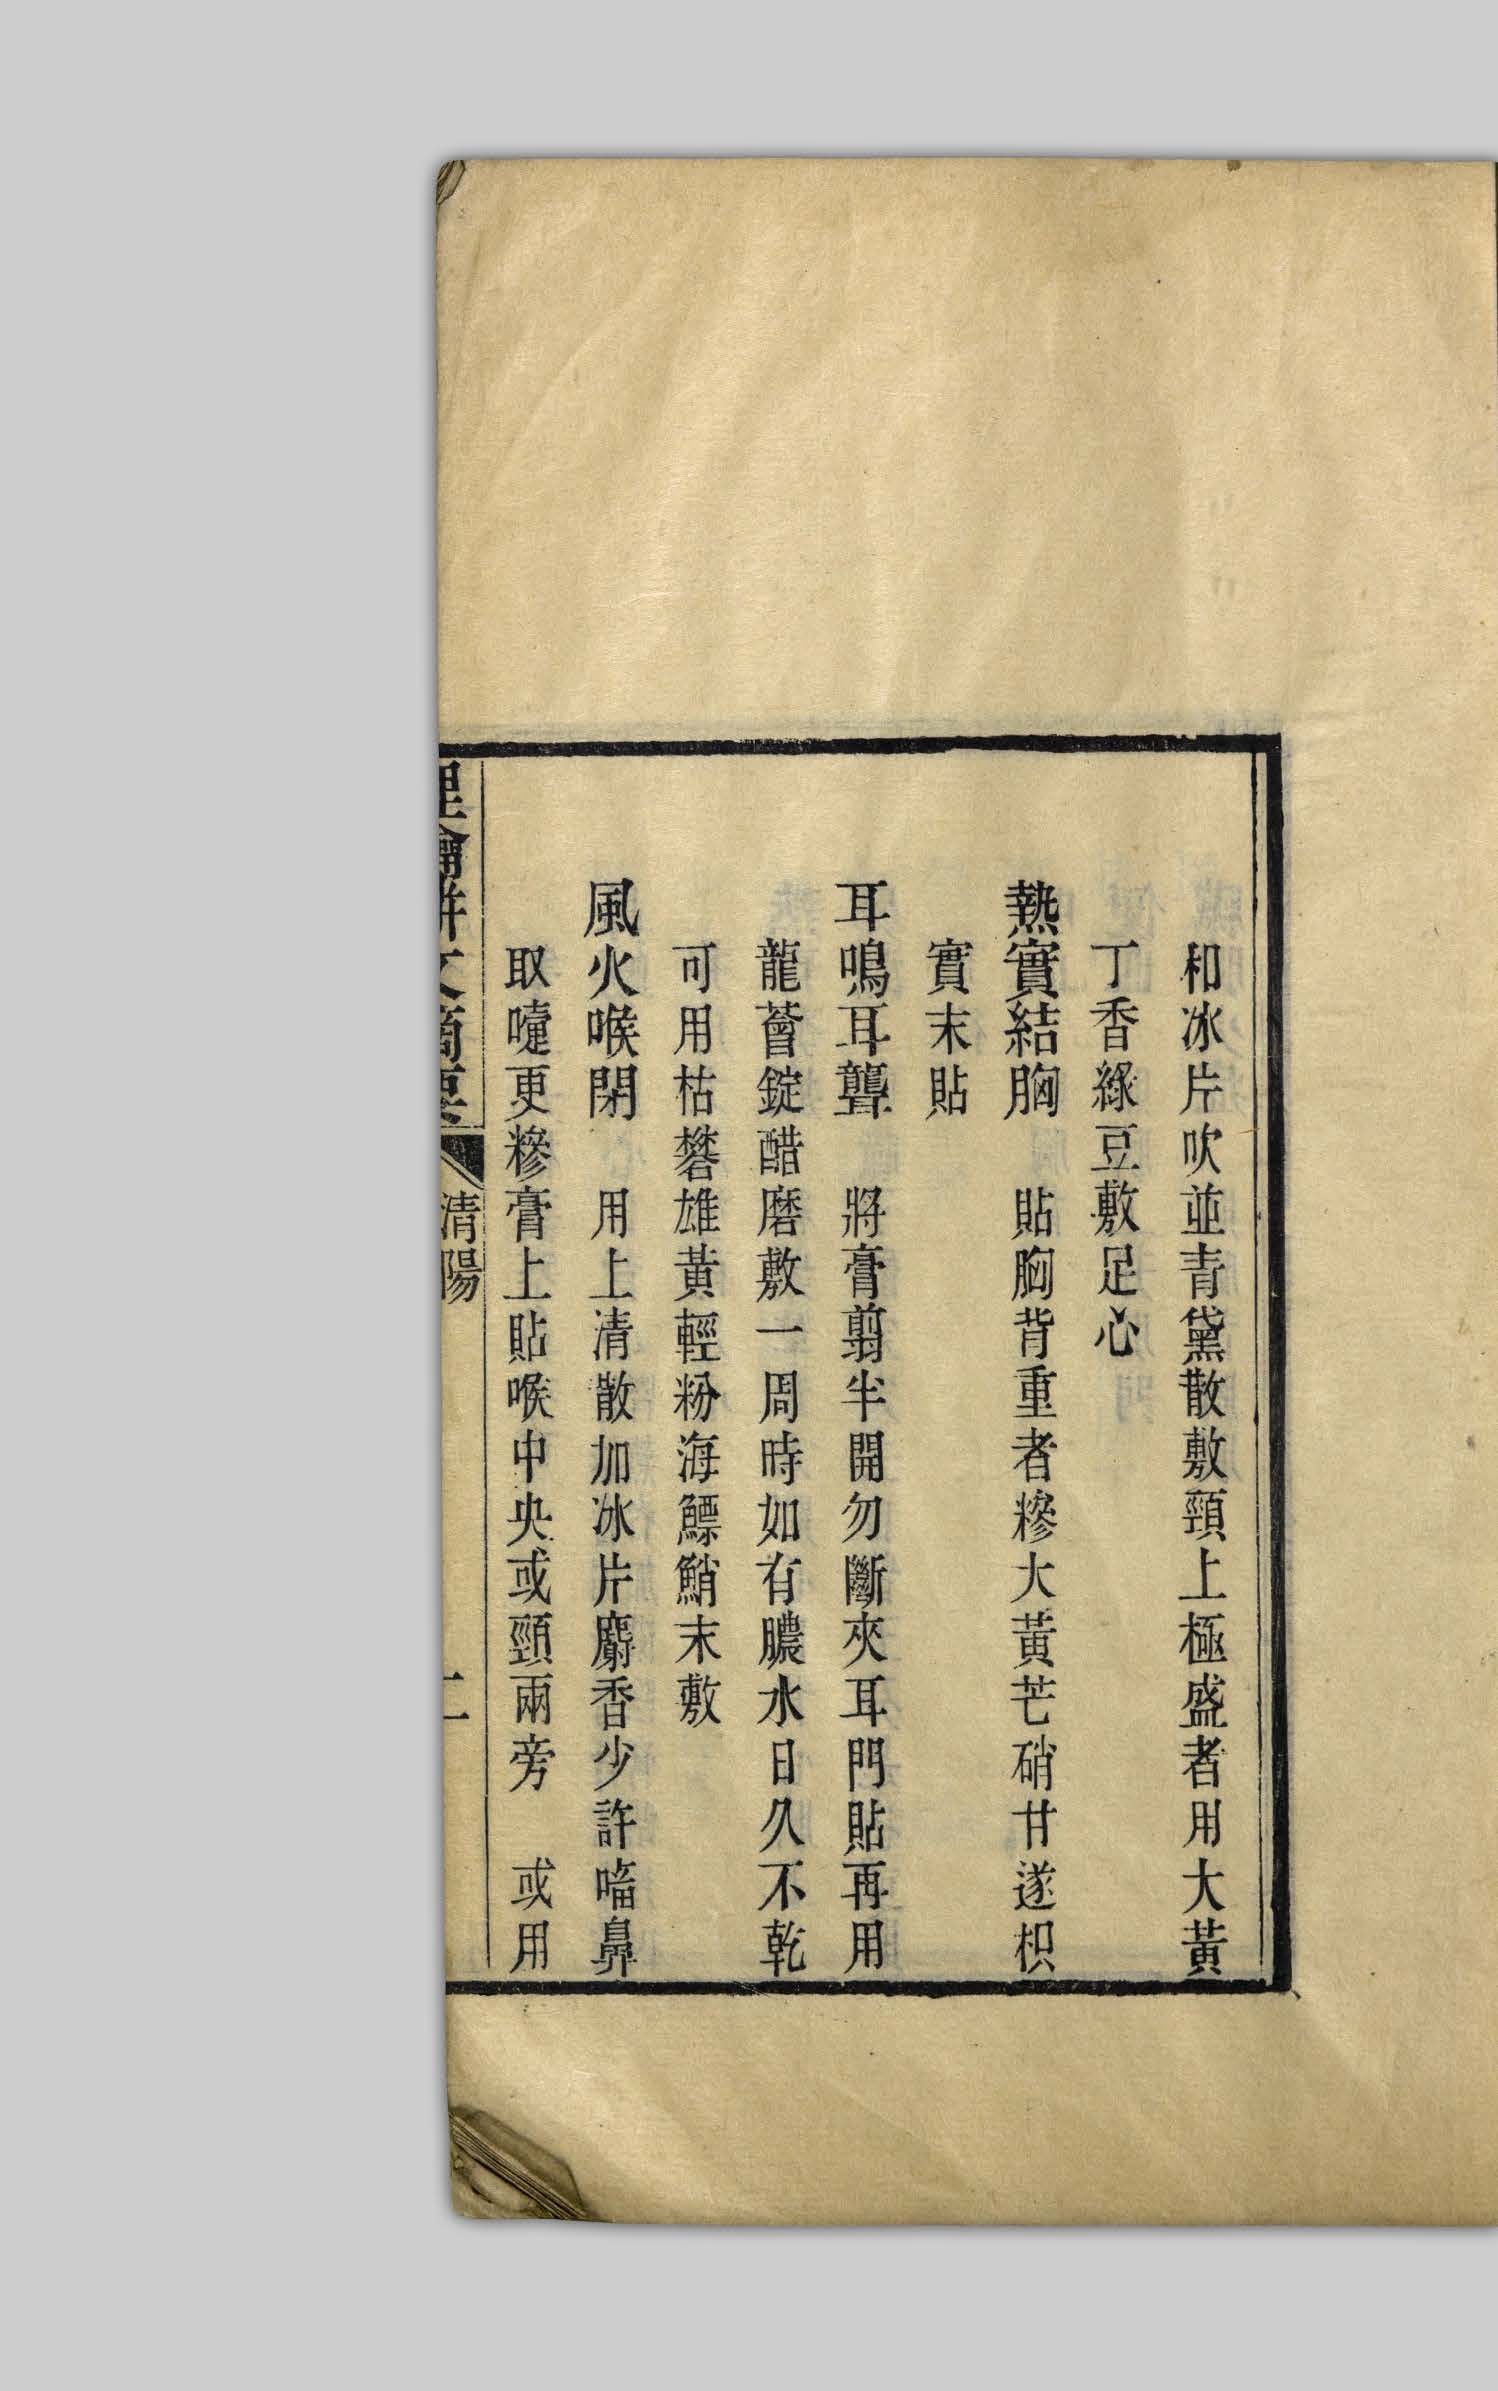 和冰片吹並青黛散敷頸上極盛者用大黃
丁香綠豆敷足心
熱實結胸　貼胸背重者糝大黃芒硝甘遂枳
實末貼
耳鳴耳聾　將膏翦半開勿斷夾耳門貼再用
龍薈錠醋磨敷一周時如有膿水日久不乾
可用枯礬雄黃輕粉海鰾鮹末敷
風火喉閉　用上清散加冰片麝香少許㗜鼻
取嚏更糝膏上貼喉中央或頸兩旁　或用
理瀹駢文摘要　清陽　二